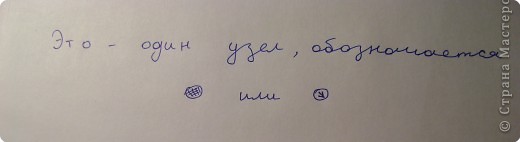 Это - один узел, обозначается
или
© Страна Мастеров